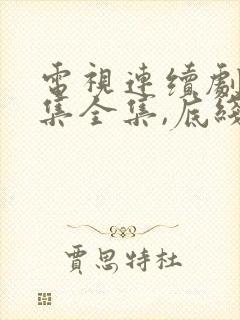 電視連續劇
集全集,底綫
賈思特杜